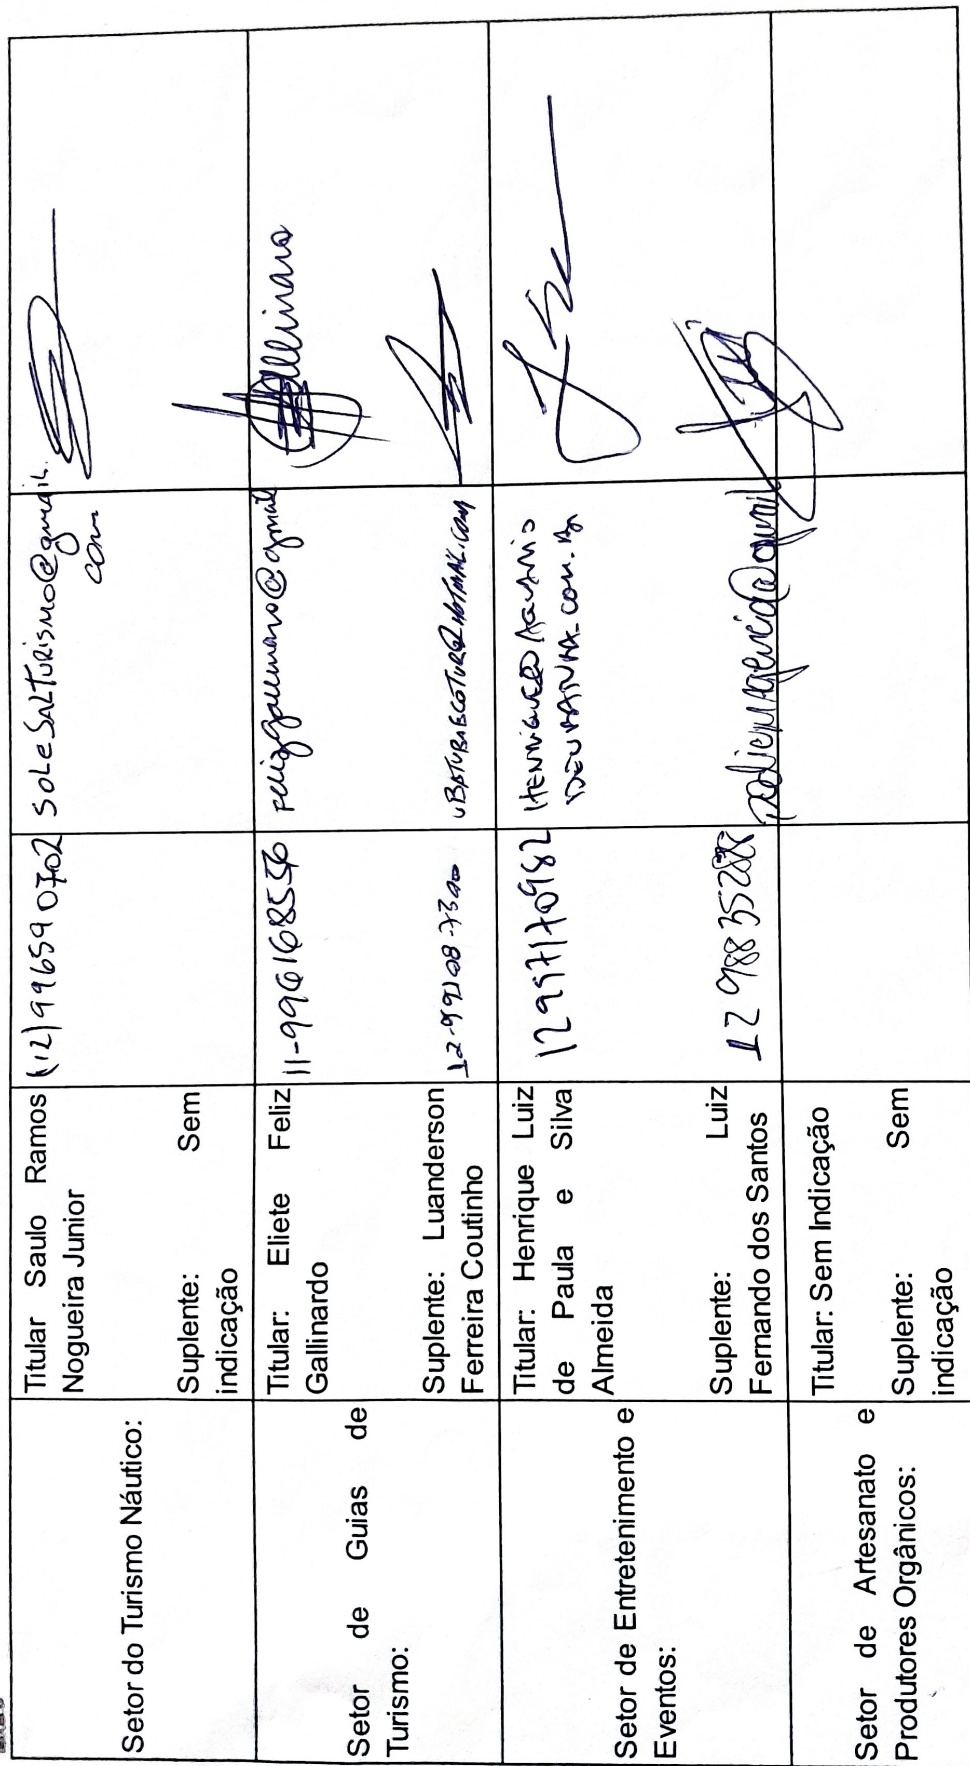 Setor do Turismo Náutico:
Titular Saulo Ramos
Nogueira Junior
Suplente: Sem
indicação
(12) 996590702
SOLeSALTURISMO@gmail.
com
Setor de Guias de
Turismo:
Titular: Eliete Feliz
Gallinardo
Suplente: Luanderson
Ferreira Coutinho
11-996168556
12-99108-7300
UBATUBAECOTUR@HOTMAIL.COM
Setor de Entretenimento e
Eventos:
Titular: Henrique Luiz
de Paula e Silva
Almeida
Suplente: Luiz
Fernando dos Santos
12997170982
12 988 35288
Setor de Artesanato e
Produtores Orgânicos:
Titular: Sem Indicação
Suplente: Sem
indicação